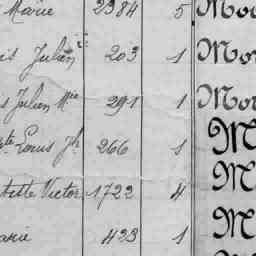 Marie 2384 5 Mo
is Julien 203 1 Mor
s Julien Mie 291 1 Mor
te Louis Jh 266 1 M
tiste Victor 1722 4 M
arie 423 1 M